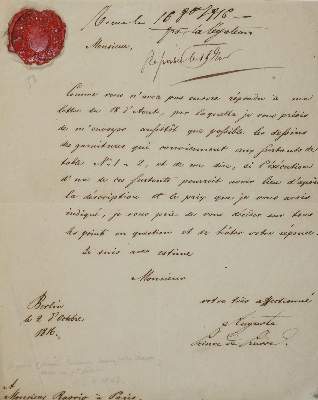 18 8bre 1816
Monsieur,
Comme vous n'avez pas encore répondu à ma
lettre du 18 d'Aout, par laquelle je vous priois
de m'envoyer aussitôt que possible les dessins
de garnitures qui conviennent aux surtouts de
table N. 1 - 2, et de me dire, si l'exécution
d'un de ces surtouts pourroit avoir lieu d'après
la description et le prix que je vous avois
indiqué, je vous prie de vous décider sur tous
les points en question et de hâter votre réponse.
Je suis avec estime
Monsieur
votre très affectionné
Berlin
le 2 d'Octbre
1816.
Auguste
Prince de Prusse.
A
Monsieur Ravrio à Paris.